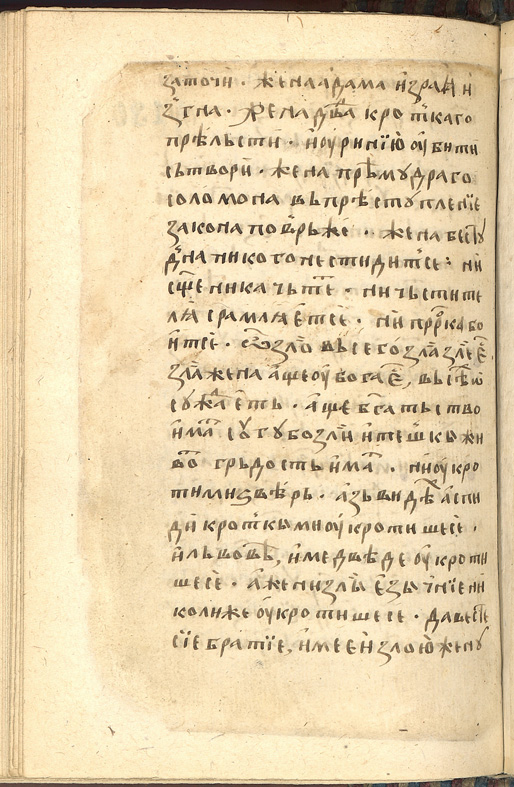 заточи · жена адама израꙗ и
згна · жена двда крот́каго
прѣльсти · и оурїию оубити
сьтвори · жена прѣмѹдраго
соломона вь прѣстѹпленїе
закона поврьже · · жена бестѹ
дна никого не стидит се · ни
сщ҃еника чьте · ни чьстите
лꙗ срамлꙗет се · ни прр҃ка бо
ит се · ѡ зло вьсего зла злѣе
злаꙗ жена аще оубога е҃, вьсѣⷨ
сѹжⷣаеть · аще бг҃атьство
имаⷨ сѹгѹбо зли и тешкы жи
воⷮ грьдость имаⷨ · ни оукро
тими ꙁвѣрь · азь видѣⷯ аспи
ди крот́кы ми оукротише се ·
и львовѣ, и медвѣде оукроти
ше се · а жени злы езычнїе ни
колиже оукротише се · да вестⷷ
сїе братїе, имеей злою женѹ